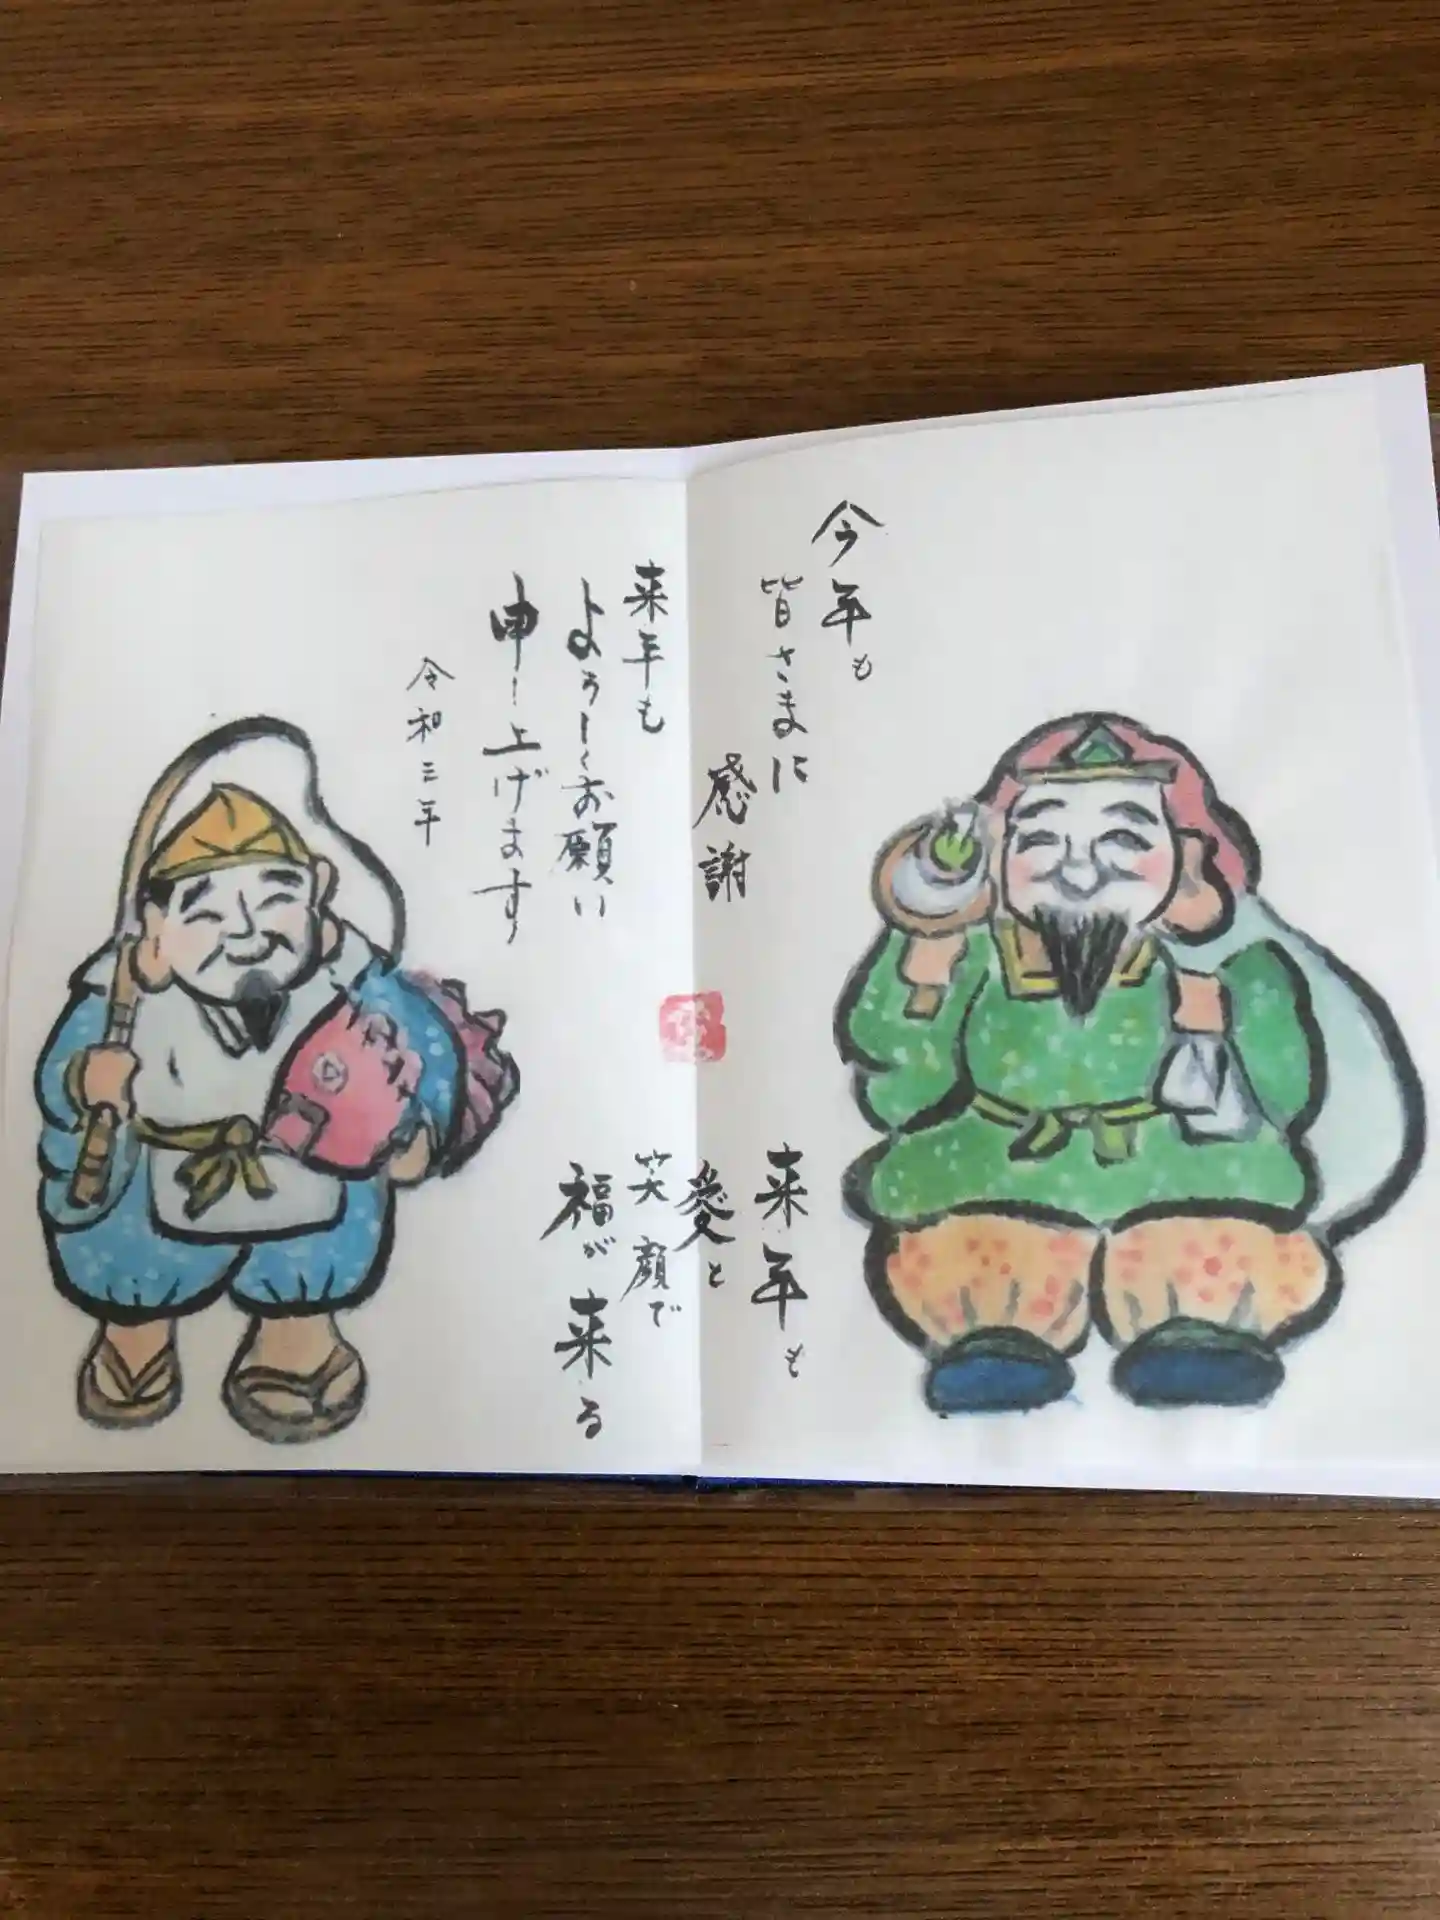 今年も
皆さまに
感謝
来年も
よろしくお願い
申し上げます
令和三年
来年も
愛と
笑顔で
福が来る